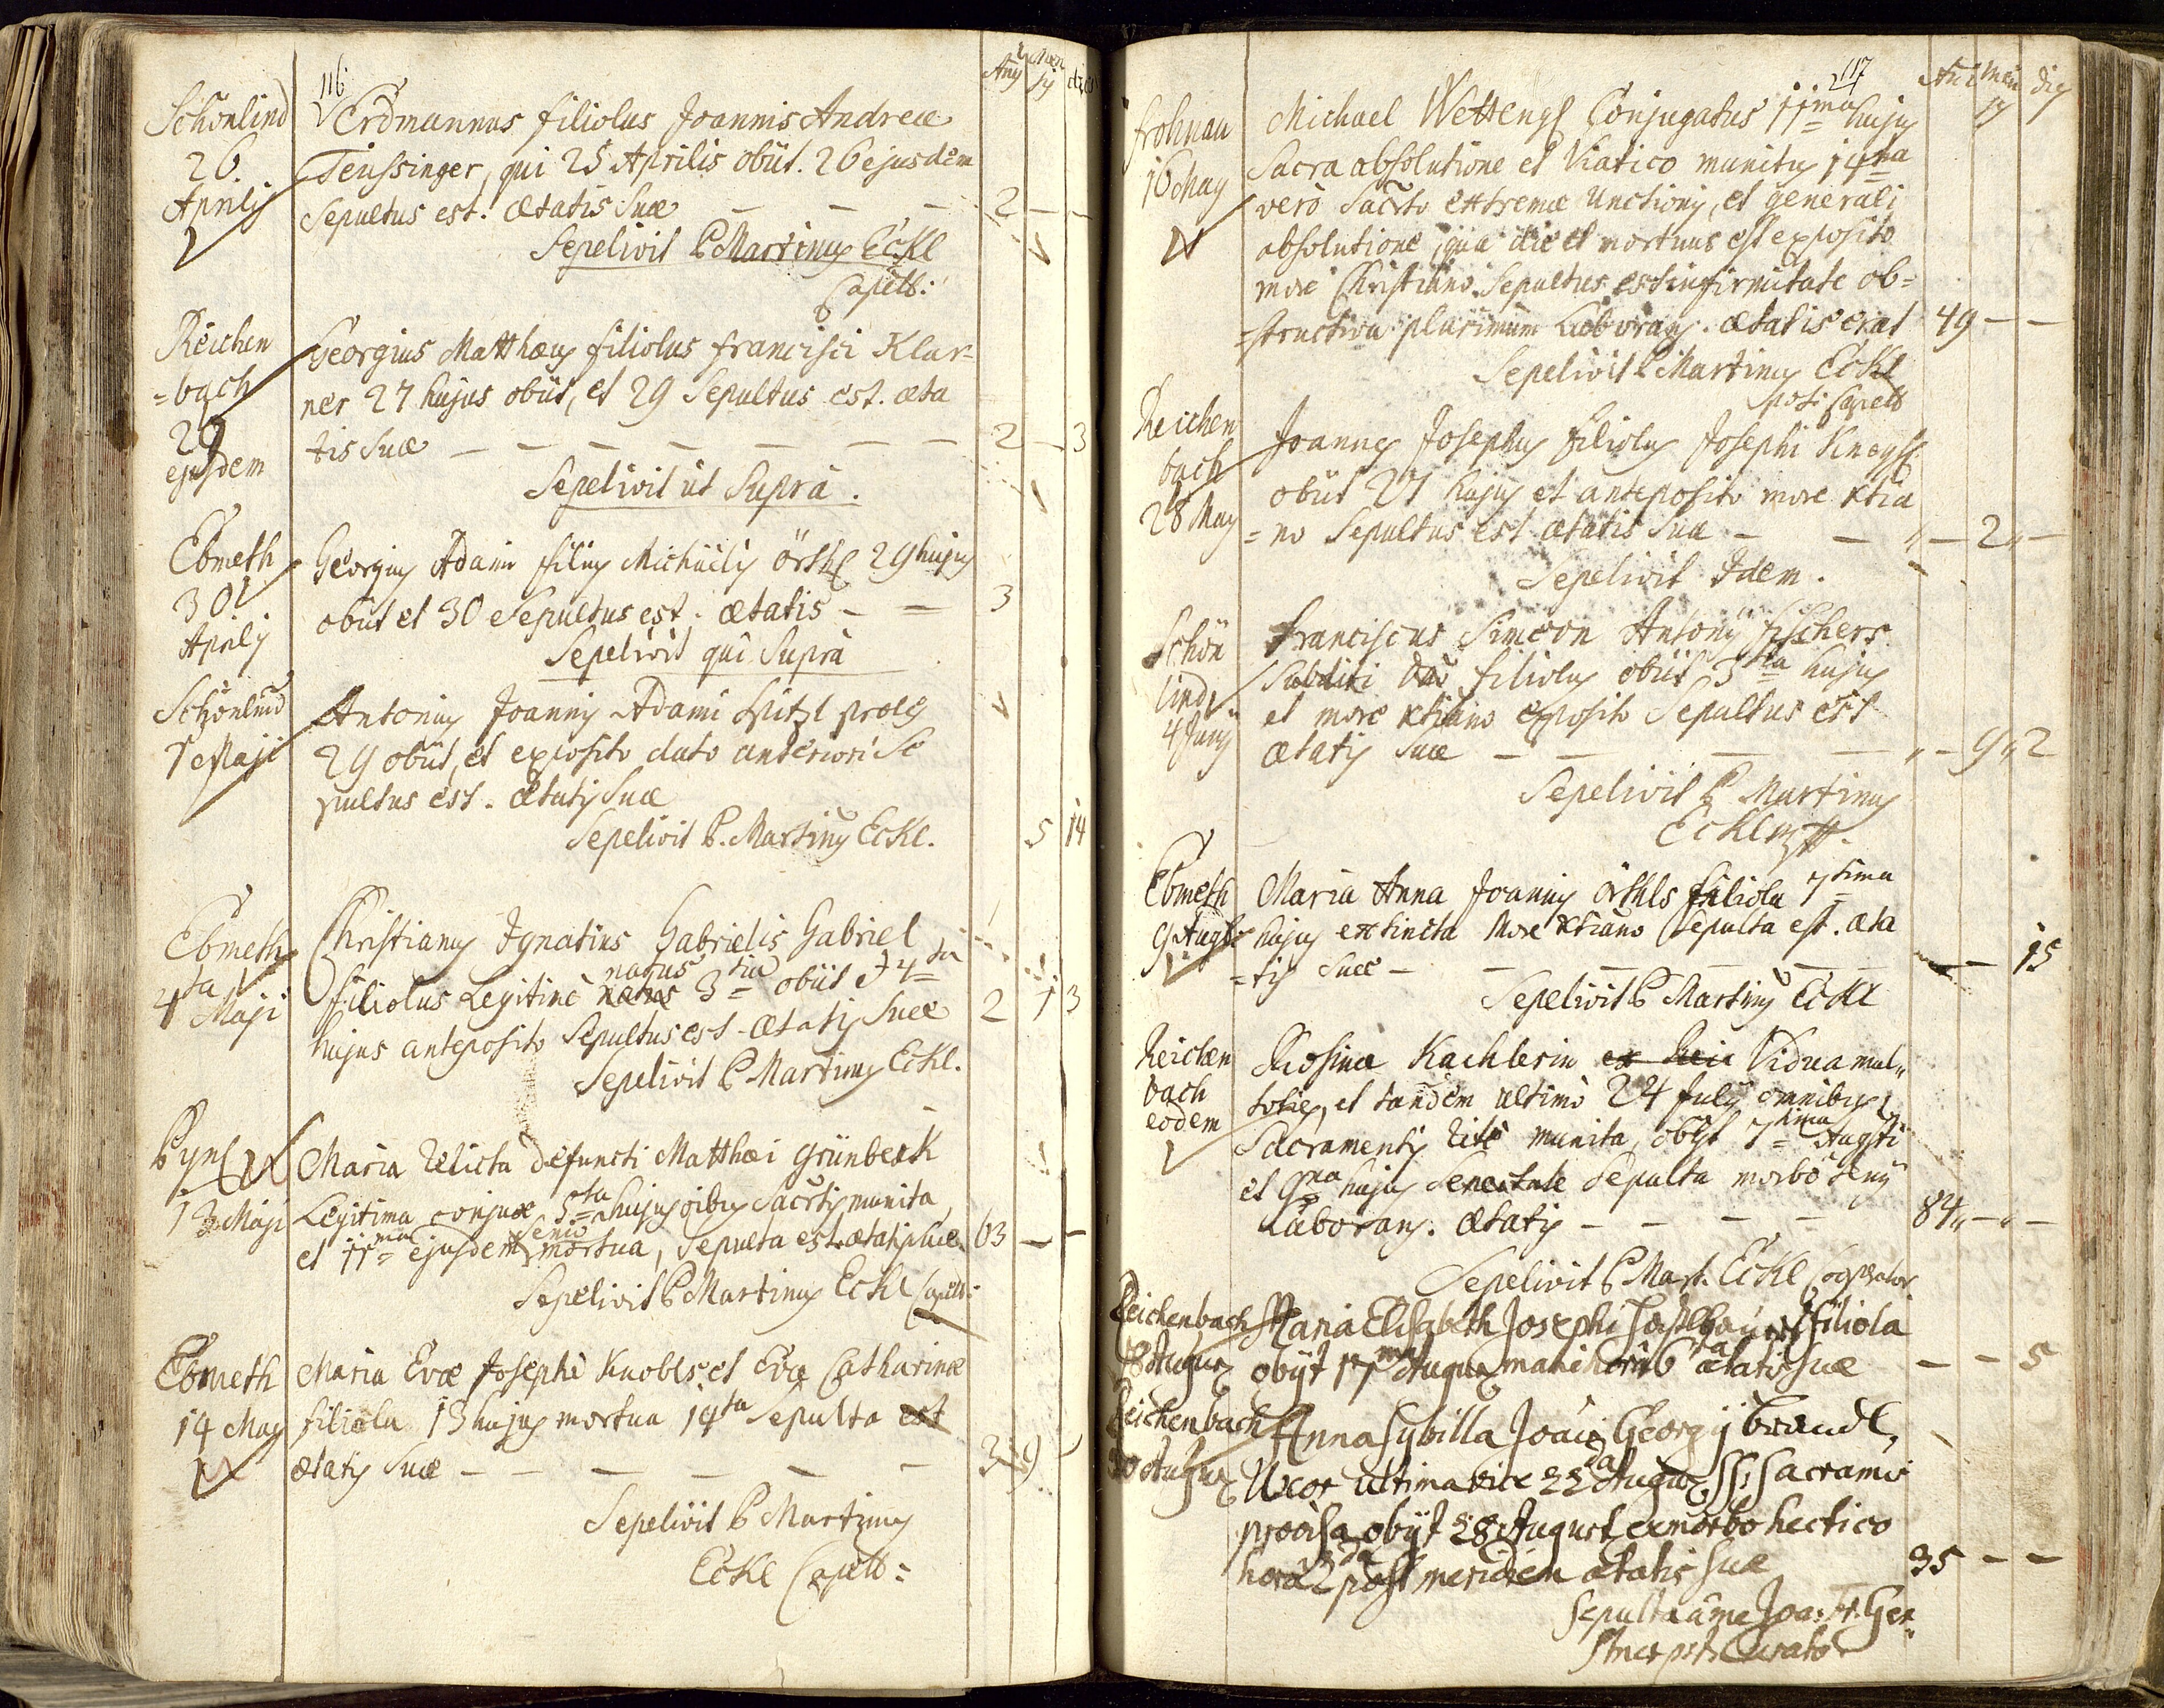 116
Anij Men sij dies
Schönlind
26.
Aprilis
Erdmannus filiolus Joannis Andreæ
Teussinger, qui 25 Aprilis obiit. 26 ejusdem
Sepultus est. ætatis Suæ — — — 2 — —
Sepelivit P Martinus Eckl
Capell:
Reichen
=bach
29
ejusdem
Georgius Matthæus filiolus francisci Klar=
ner 27 hujus obiit, et 29 Sepultus est. æta
tis Suæ — — — — — — 2 — 3
Sepelivit ut Supra.
Ebmeth
30
Aprilis
Georgius Adam filius Michäelis örthl 29 hujus
obiit et 30 Sepultus est. ætatis — — 3
Sepelivit qui Supra
Schönlind
1 Maji
Antonius Joannis Adami Spitzl proles
29 obiit, et exposito dato anteriori Se
pultus est. ætatis Suæ
5 14
Sepelivit P. Martinus Eckl.
Ebmeth
4ta Maji
Christianus Ignatius Gabrielis Gabriel
filiolus Legitimè natus 3tia obiit et 4ta
hujus anteposito Sepultus est. ætatis Suæ 2 1 3
Sepelivit P Martinus Eckl.
13 Maji
Maria Relicta defuncti Matthæi Grünberk
Legitima conjux, 5ta hujus oibus Sacrtis munita,
et 11ma ejusdem senio mortua, Sepulta est. ætatis suæ. 63 — —
Sepelivit P Martinus Eckl Capell:
Ebmeth
14 May
Maria Evæ Josephi Knobls et Evæ Catharinæ
filiola 13 hujus mortua 14ta Sepulta est
ætatis Suæ — — — — — — 3 9
Sepelivit P Martinus
Eckl Capell:
117
Ani Men sij dies
frohnau
16 May
Michael Wettengl Conjugatus 11ma hujus
Sacra absolutione et Viatico munitus 14ta
verò Sacrto extremæ Unctionis, et generali
absolutione, qua die et mortuus est exposito
more Christiano Sepultus est infirmitate ob=
=structiva plurimùm Laborans. ætatis erat 49 — —
Sepelivit P Martinus Eckl
Capell
Reichen
bach
28 May
Joannes Josephus filiolus Josephi
obiit 27 hujus et anteposito more xtia
=no Sepultus est ætatis Suæ — — „ — 2 „ —
Sepelivit Idem.
Schön
lind
4 Junij
Franciscus Simeon Antonij fischers
Subditi filiolus obiit 3tia hujus
et more xtiano exposito Sepultus est
ætatis Suæ — — — — „ — 9 „ 2
Sepelivit P Martinus
Eckl
Ebmeth
9 Augti
Maria Anna Joannis örthls filiola 7tima
hujus extincta More xtiano Sepulta est. æta
=tis Suæ — — — — — — — 15
Sepelivit P Martinus Eckl
Reichen
bach
eodem
Rosina Kachlerin Vidua mul„
toties, et tandem ultimò 24 Julij omnibus
Sacramentis ritè munita, obijt 7tima Augsti
et 9na hujus Senectute Sepulta morbo Senij
Laborans. ætatis — — — — 84 „ — „ —
Sepelivit P Mart. Eckl Cooperator
Reichenbach
18 Augus
Maria Elisabeth Josephi filiola
obijt 17ma Augus mane hora 6ta ætatis suæ — — 5
Reichenbach
30 Augus
Anna Sybilla Joais Georgij Brandl,
Uxor ultima vice 22da Augus SS: Sacramis
provisa obijt 28 August ex morbo hectico
horâ 2da post meridiem ætatis suæ 35 — —
sepulta à me Joa: Fr. Ger„
stner Curator